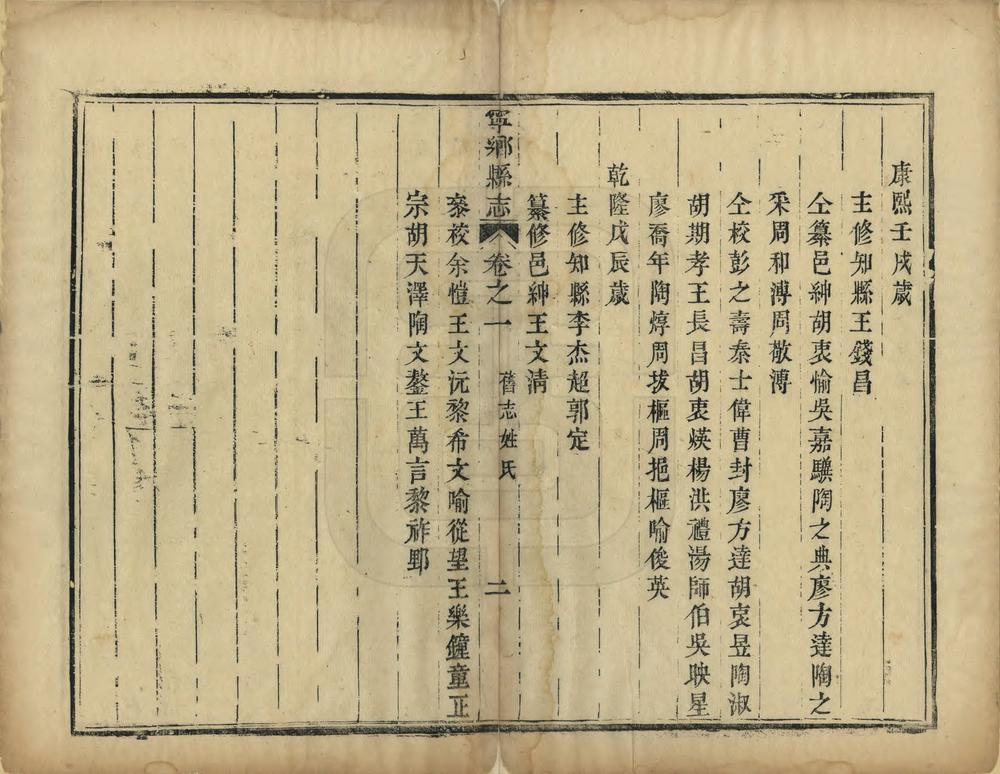 康熙壬戌歲
主修知縣王錢昌
仝纂邑紳胡衷愉吳嘉驥陶之典廖方達陶之
采周和溥周敬溥
仝校彭之壽秦士偉曹封廖方達胡衷昱陶淑
胡期孝王長昌胡衷煐楊洪禮湯師伯吳映星
廖喬年陶焞周拔樞周挹樞喻俊英
乾隆戊辰歲
主修知縣李杰超郭定
纂修邑紳王文清
寧鄉縣志 卷之一 舊志姓氏 二
叅校余愷王文沅黎希文喻從望王樂鐘童正
宗胡天澤陶文鏊王萬言黎祚郢